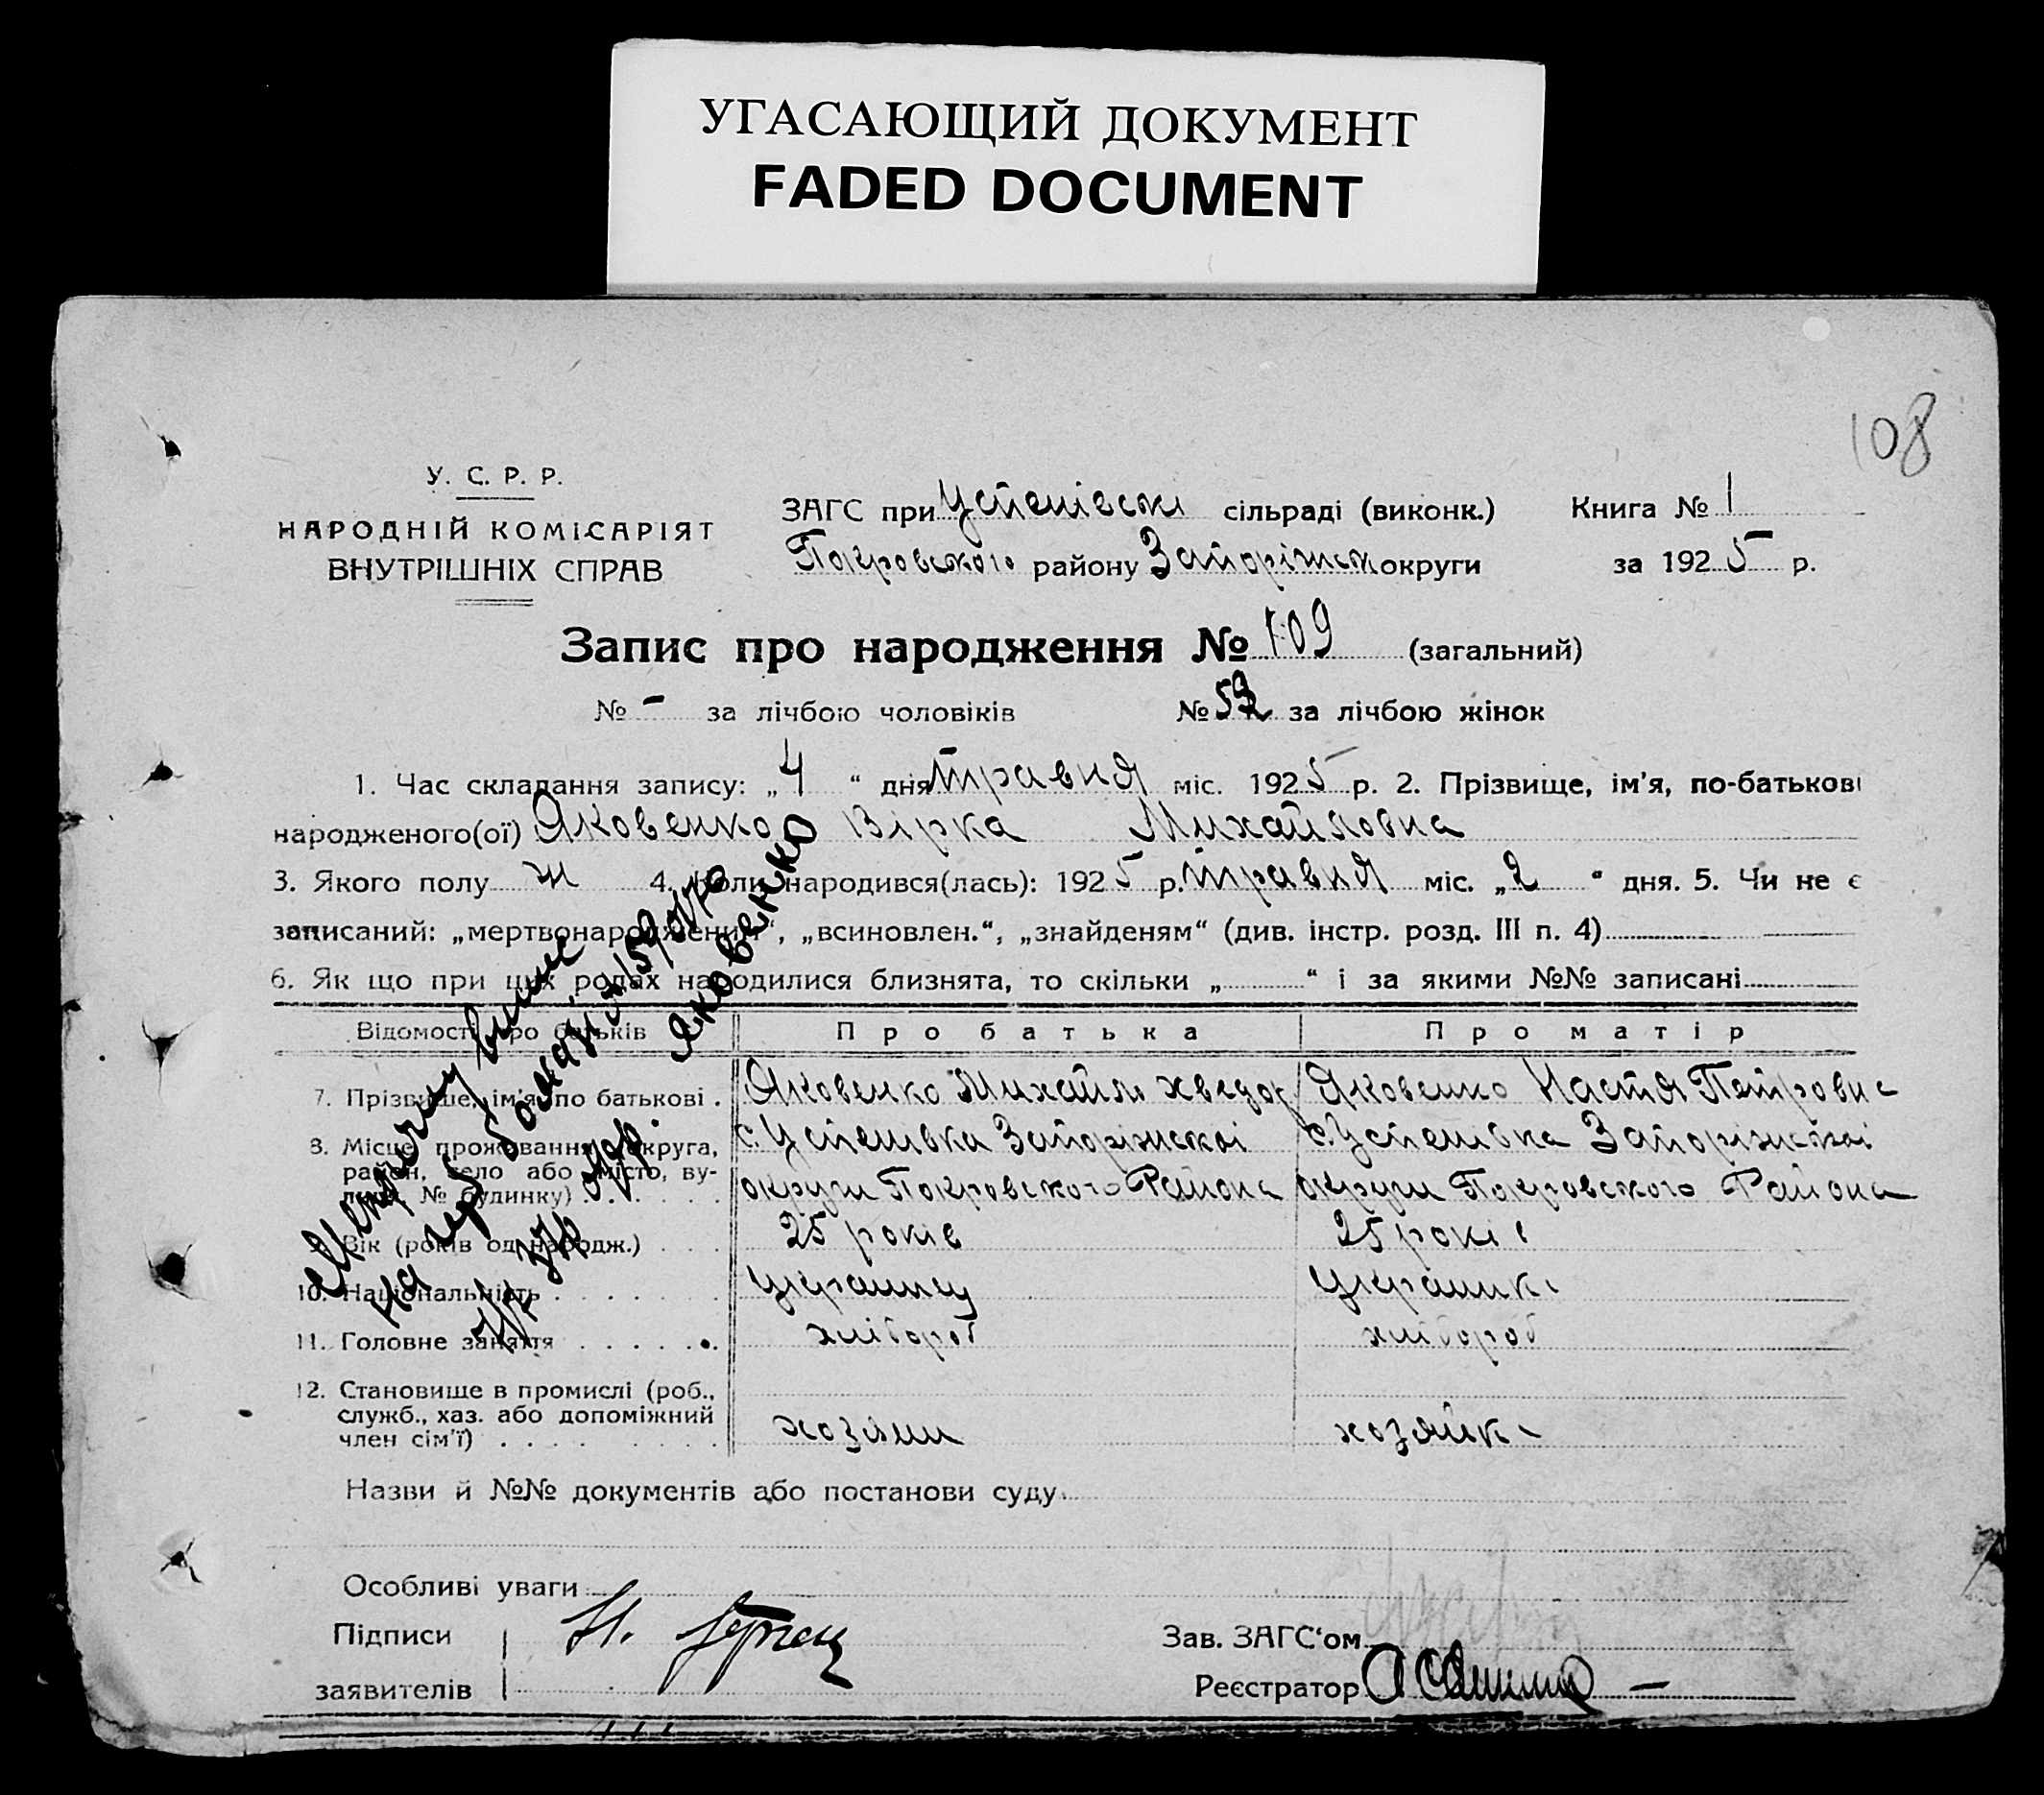 УГАСАЮЩИЙ ДОКУМЕНТ
FADED DOCUMENT
108
У. С. Р. Р.
НАРОДНІЙ КОМІСАРІЯТ
ВНУТРІШНІХ СПРАВ
ЗАГС при Успенівскі сільраді (виконк.) Книга № 1
Покровського району Запоріжськ округи за 1925 р.
Запис про народження № 109 (загальний)
№ - за лічбою чоловіків № 52 за лічбою жінок
1. Час складання запису: „4“ дня травня міс. 1925 р. 2. Прізвище, ім'я, по-батькові
народженого(ої) Яковенко Вірка Михайловна
3. Якого полу ж 4. Коли народився(лась): 1925 р. травня міс. „2“ дня. 5. Чи не є
записаний: „мертвонароджений“, „всиновлен.“, „знайденям“ (див. інстр. розд. III п. 4)
6. Як що при цих родах народилися близнята, то скільки „ “ і за якими №№ записані
Відомості про батьків Про батька Про матір
7. Прізвище, ім'я, по батькові . Яковенко Михайло Хведор Яковенко Настя Петровна
8. Місце проживання (округа, район, село або місто, вулиця, № будинку) с. Успенівка Запоріжскоі с. Успенівка Запоріжскоі
округи Покровського Района округи Покровського Района
9. Вік (років од народж.) 25 років 25 років
10. Національність украинец украинка
11. Головне заняття хлібороб хлібороб
12. Становище в промислі (роб.,
служб., хаз. або допоміжний
член сім'ї) хозяин хозяйка
Назви й №№ документів або постанови суду
Особливі уваги
Підписи
заявителів
Зав. ЗАГС'ом
Реєстратор
Яковенко